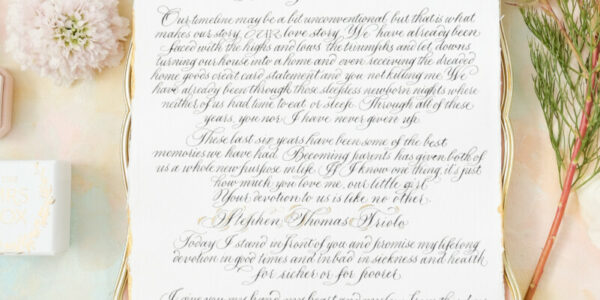 Our timeline may be a bit unconventional, but that is what
makes our story, OUR love story. We have already been
faced with the highs and lows, the triumphs and let downs,
turning our house into a home and even receiving the dreaded
home goods credit card statement and you not killing me. We
have already been through those sleepless newborn nights where
neither of us had time to eat, or sleep. Through all of these
years, you nor I have never given up.
These last six years have been some of the best
memories we have had. Becoming parents has given both of
us a whole new purpose in life. If I know one thing, it's just
how much you love me, our little girl.
Your devotion to us is like no other.
Stephen Thomas Ariolo
Today I stand in front of you and promise my lifelong
devotion in good times and in bad, in sickness and health,
for richer or for poorer.
I give you my hand, my heart and